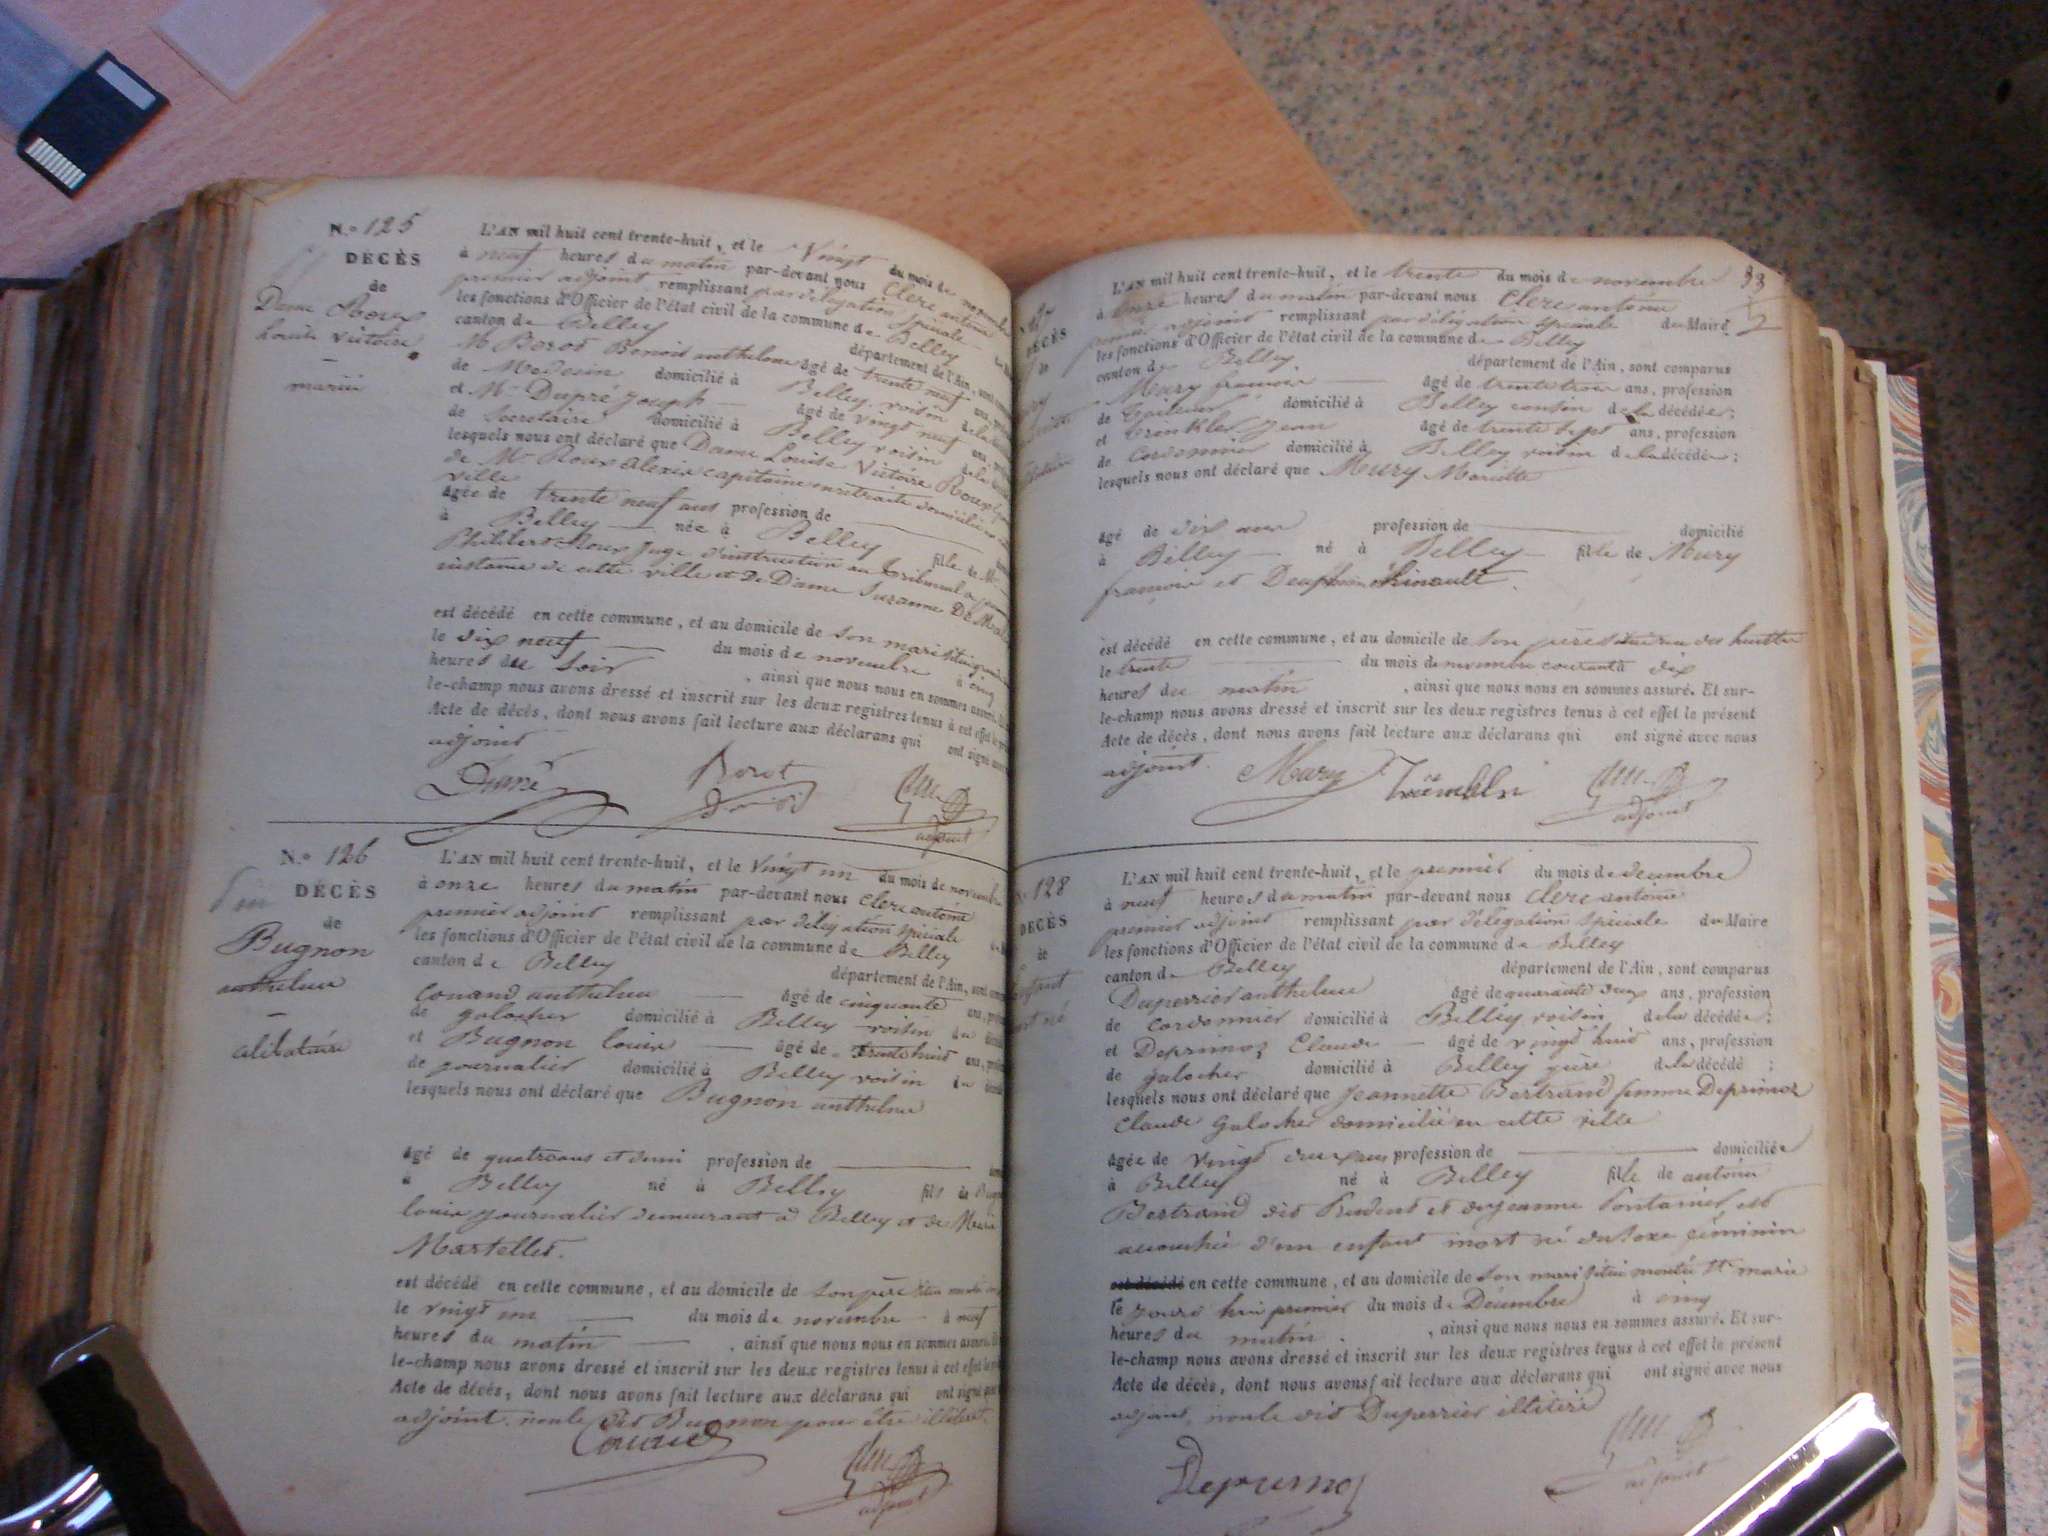 N.º 125
DÉCÈS
de
Dame Roux
Louise Victoire
mariée
L'AN mil huit cent trente-huit, et le Vingt du mois de
à neuf heures du matin par-devant nous Clerc antoine
premier adjoint remplissant par délégation spéciale
les fonctions d'Officier de l'état civil de la commune de Belley
canton de Belley département de l'Ain, sont
Mr Borot Benoit anthelme âgé de trente neuf ans
de Médecin domicilié à Belley voisin de la
et Mr Dupré Joseph âgé de vingt neuf ans
de Secretaire domicilié à Belley voisin de la
lesquels nous ont déclaré que Dame Louise Victoire Roux
de Mr Roux Alexis capitaine en retraite domicilié en
ville
âgée de trente neuf ans profession de
à Belley née à Belley fille de Mr
Philibert Roux Juge d'instruction au Tribunal de
instance de cette ville et de Dame Suzanne De
est décédé en cette commune, et au domicile de son mari
le dix neuf du mois de novembre à cinq
heures du soir, ainsi que nous nous en sommes assuré.
le-champ nous avons dressé et inscrit sur les deux registres tenus à cet effet le
Acte de décès, dont nous avons fait lecture aux déclarans qui ont signé avec
adjoint
Dupré Borot
adjoint
N.º 126
DÉCÈS
de
Bugnon
anthelme
célibataire
L'AN mil huit cent trente-huit, et le vingt un du mois de novembre
à onze heures du matin par-devant nous Clerc antoine
premier adjoint remplissant par délégation spéciale
les fonctions d'Officier de l'état civil de la commune de Belley
canton de Belley département de l'Ain, sont
Conand anthelme âgé de cinquante ans
de galocher domicilié à Belley voisin du
et Bugnon Louis âgé de trente huit ans
de journalier domicilié à Belley voisin du
lesquels nous ont déclaré que Bugnon anthelme
âgé de quatre ans et demi profession de
à Belley né à Belley fils de
Louis journalier demeurant à Belley et de Marie
Martellet.
est décédé en cette commune, et au domicile de son père
le vingt un du mois de novembre à neuf
heures du matin, ainsi que nous nous en sommes assuré.
le-champ nous avons dressé et inscrit sur les deux registres tenus à cet effet le
Acte de décès, dont nous avons fait lecture aux déclarans qui ont signé
adjoint. non le dit Bugnon pour être illitéré.
Conand
adjoint
33
DÉCÈS
de
L'AN mil huit cent trente-huit, et le trente du mois de novembre
à onze heures du matin par-devant nous Clerc antoine
premier adjoint remplissant par délégation spéciale du Maire
les fonctions d'Officier de l'état civil de la commune de Belley
canton de Belley département de l'Ain, sont comparus
Mury françois âgé de trente trois ans, profession
de domicilié à Belley cousin de la décédée;
et Jean âgé de trente sept ans, profession
de cordonnier domicilié à Belley voisin de la décédée;
lesquels nous ont déclaré que Mury Mariette
âgé de dix ans profession de domicilié
à Belley né à Belley fille de Mury
françois et
est décédé en cette commune, et au domicile de son père
le trente du mois de novembre courant à dix
heures du matin, ainsi que nous nous en sommes assuré. Et sur-
le-champ nous avons dressé et inscrit sur les deux registres tenus à cet effet le présent
Acte de décès, dont nous avons fait lecture aux déclarans qui ont signé avec nous
adjoint.
Mury
adjoint
128
DÉCÈS
de
mort né
L'AN mil huit cent trente-huit, et le premier du mois de decembre
à neuf heures du matin par-devant nous Clerc antoine
premier adjoint remplissant par délégation spéciale du Maire
les fonctions d'Officier de l'état civil de la commune de Belley
canton de Belley département de l'Ain, sont comparus
Duperrier anthelme âgé de quarante deux ans, profession
de cordonnier domicilié à Belley voisin de la décédée;
et Deprimoz Claude âgé de vingt huit ans, profession
de galocher domicilié à Belley père de la décédé;
lesquels nous ont déclaré que Jeannette Bertrand femme Deprimoz
Claude Galocher domicilié en cette ville
âgée de vingt deux ans profession de domiciliée
à Belley né à Belley fille de antoine
Bertrand dit Prudent et de Jeanne Fontanier, est
accouchée d'un enfant mort né du sexe féminin
est décédé en cette commune, et au domicile de son mari situé montée Ste marie
le jourd'hui premier du mois de Décembre à cinq
heures du matin, ainsi que nous nous en sommes assuré. Et sur-
le-champ nous avons dressé et inscrit sur les deux registres tenus à cet effet le présent
Acte de décès, dont nous avons fait lecture aux déclarans qui ont signé avec nous
adjoint, non le dit Duperrier illitéré
Deprimoz
adjoint